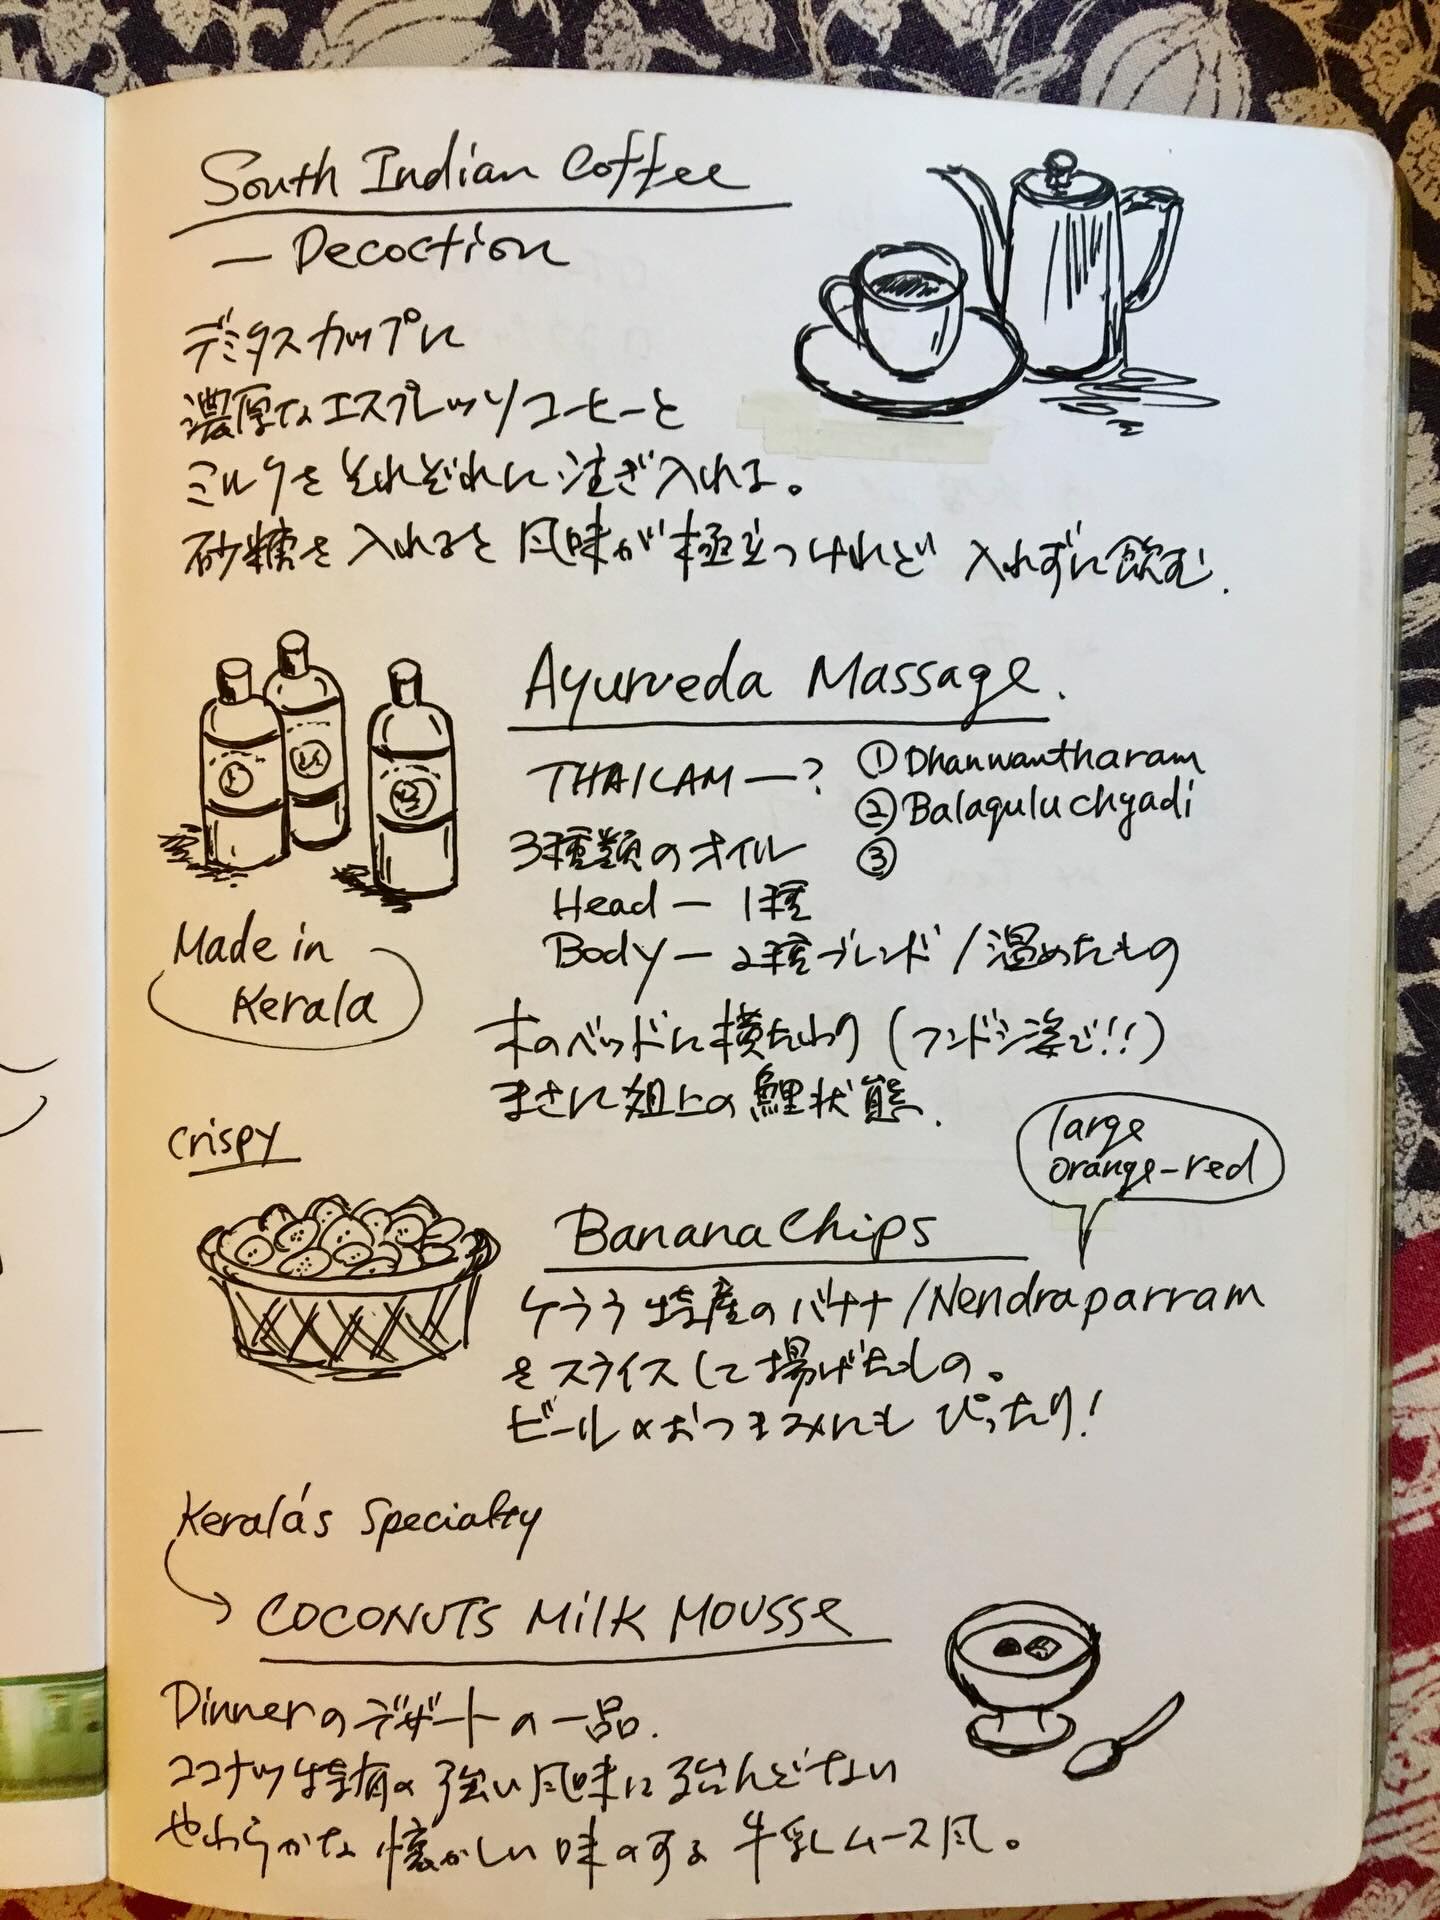 South Indian Coffee
— Decoction
デミタスカップに
濃厚なエスプレッソコーヒーと
ミルクをそれぞれに注ぎ入れる。
砂糖を入れると風味が極立つけれど 入れずに飲む.
Ayurveda Massage.
THAILAM —?
① Dhanwantharam
② Balagulu chyadi
③
3種類のオイル
Head — 1種
Body — 2種ブレンド / 温めたもの
Made in
Kerala
木のベッドに横たわり (フンドシ姿で!!)
まさに俎上の鯉状態.
crispy
large
orange-red
Banana Chips
ケララ特産のバナナ/Nendraparram
をスライスして揚げたもの。
ビールのおつまみにもぴったり!
Kerala's Specialty
COCONUTS MilK MOUSSE
Dinnerのデザートの一品.
ココナッツ特有の強い風味に
やわらかな懐かしい味のする牛乳ムース風。